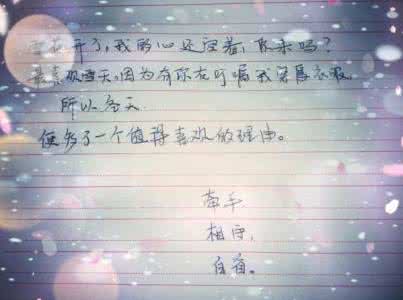 雪花开了,我的心还空着,你来吗?
最喜欢雪天,因为有你在叮嘱我穿厚衣服
所以冬天
便多了一个值得喜欢的理由。
牵手
相守,
白首。